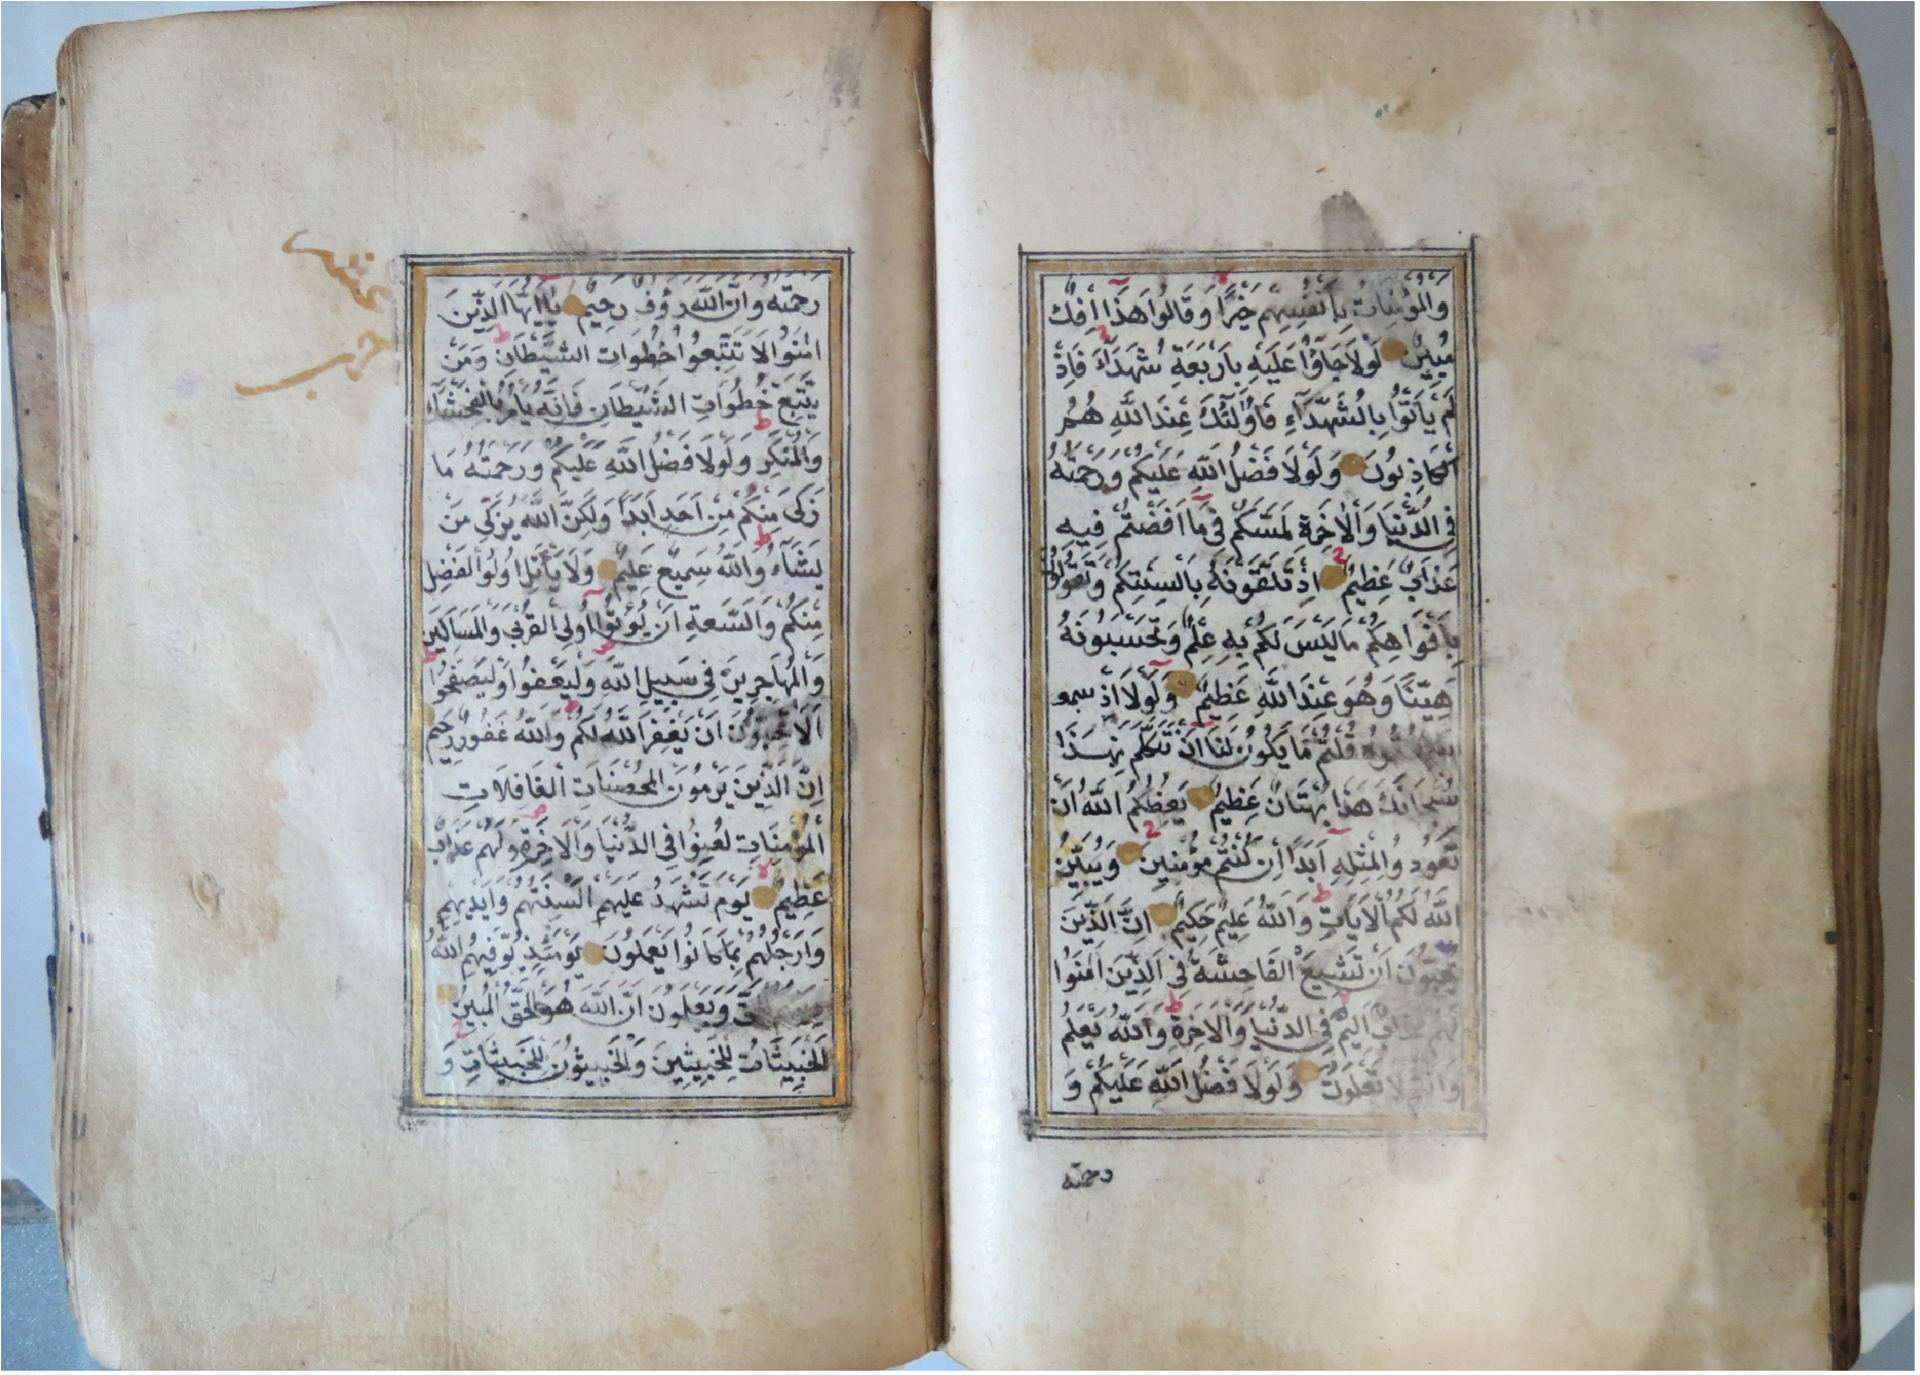 وَالْمُؤْمِنَاتُ بِاَنْفُسِهِمْ خَيْرًا وَقَالُوا هَذَا اِفْكٌ
مُبِينٌ لَوْلَا جَاؤُا عَلَيْهِ بِاَرْبَعَةِ شُهَدَآءَ فَاِذْ
لَمْ يَاْتُوا بِالشُّهَدَآءِ فَاُولٰئِكَ عِنْدَ اللّٰهِ هُمُ
الْكَاذِبُونَ وَلَوْلَا فَضْلُ اللّٰهِ عَلَيْكُمْ وَرَحْمَتُهُ
فِى الدُّنْيَا وَالْاٰخِرَةِ لَمَسَّكُمْ فِى مَآ اَفَضْتُمْ فِيهِ
عَذَابٌ عَظِيمٌ اِذْ تَلَقَّوْنَهُ بِاَلْسِنَتِكُمْ وَتَقُولُونَ
بِاَفْوَاهِكُمْ مَا لَيْسَ لَكُمْ بِهِ عِلْمٌ وَتَحْسَبُونَهُ
هَيِّنًا وَهُوَ عِنْدَ اللّٰهِ عَظِيمٌ وَلَوْلَا اِذْ سمع
قُلْتُمْ مَا يَكُونُ لَنَا اَنْ نَتَكَلَّمَ بِهَذَا
سُبْحَانَكَ هَذَا بُهْتَانٌ عَظِيمٌ يَعِظُكُمُ اللّٰهُ اَنْ
تَعُودُوا لِمِثْلِهِ اَبَدًا اِنْ كُنْتُمْ مُؤْمِنِينَ وَيُبَيِّنُ
اللّٰهُ لَكُمُ الْاٰيَاتِ وَاللّٰهُ عَلِيمٌ حَكِيمٌ اِنَّ الَّذِينَ
يُحِبُّونَ اَنْ تَشِيعَ الْفَاحِشَةُ فِى الَّذِينَ اٰمَنُوا
لَهُمْ عَذَابٌ اَلِيمٌ فِى الدُّنْيَا وَالْاٰخِرَةِ وَاللّٰهُ يَعْلَمُ
وَاَنْتُمْ لَا تَعْلَمُونَ وَلَوْلَا فَضْلُ اللّٰهِ عَلَيْكُمْ وَ
رحمته
رَحْمَتُهُ وَاَنَّ اللّٰهَ رَؤُفٌ رَحِيمٌ يَا اَيُّهَا الَّذِينَ
اٰمَنُوا لَا تَتَّبِعُوا خُطُوَاتِ الشَّيْطَانِ وَمَنْ
يَتَّبِعْ خُطُوَاتِ الشَّيْطَانِ فَاِنَّهُ يَاْمُرُ بِالْفَحْشَآءِ
وَالْمُنْكَرِ وَلَوْلَا فَضْلُ اللّٰهِ عَلَيْكُمْ وَرَحْمَتُهُ مَا
زَكَى مِنْكُمْ مِنْ اَحَدٍ اَبَدًا وَلَكِنَّ اللّٰهَ يُزَكِّى مَنْ
يَشَآءُ وَاللّٰهُ سَمِيعٌ عَلِيمٌ وَلَا يَاْتَلِ اُولُوا الْفَضْلِ
مِنْكُمْ وَالسَّعَةِ اَنْ يُؤْتُوا اُولِى الْقُرْبَى وَالْمَسَاكِينَ
وَالْمُهَاجِرِينَ فِى سَبِيلِ اللّٰهِ وَلْيَعْفُوا وَلْيَصْفَحُوا
اَلَا تُحِبُّونَ اَنْ يَغْفِرَ اللّٰهُ لَكُمْ وَاللّٰهُ غَفُورٌ رَحِيمٌ
اِنَّ الَّذِينَ يَرْمُونَ الْمُحْصَنَاتِ الْغَافِلَاتِ
الْمُؤْمِنَاتِ لُعِنُوا فِى الدُّنْيَا وَالْاٰخِرَةِ وَلَهُمْ عَذَابٌ
عَظِيمٌ يَوْمَ تَشْهَدُ عَلَيْهِمْ اَلْسِنَتُهُمْ وَاَيْدِيهِمْ
وَاَرْجُلُهُمْ بِمَا كَانُوا يَعْمَلُونَ يَوْمَئِذٍ يُوَفِّيهِمُ اللّٰهُ
وَيَعْلَمُونَ اَنَّ اللّٰهَ هُوَ الْحَقُّ الْمُبِينُ
اَلْخَبِيثَاتُ لِلْخَبِيثِينَ وَالْخَبِيثُونَ لِلْخَبِيثَاتِ وَ
حزب